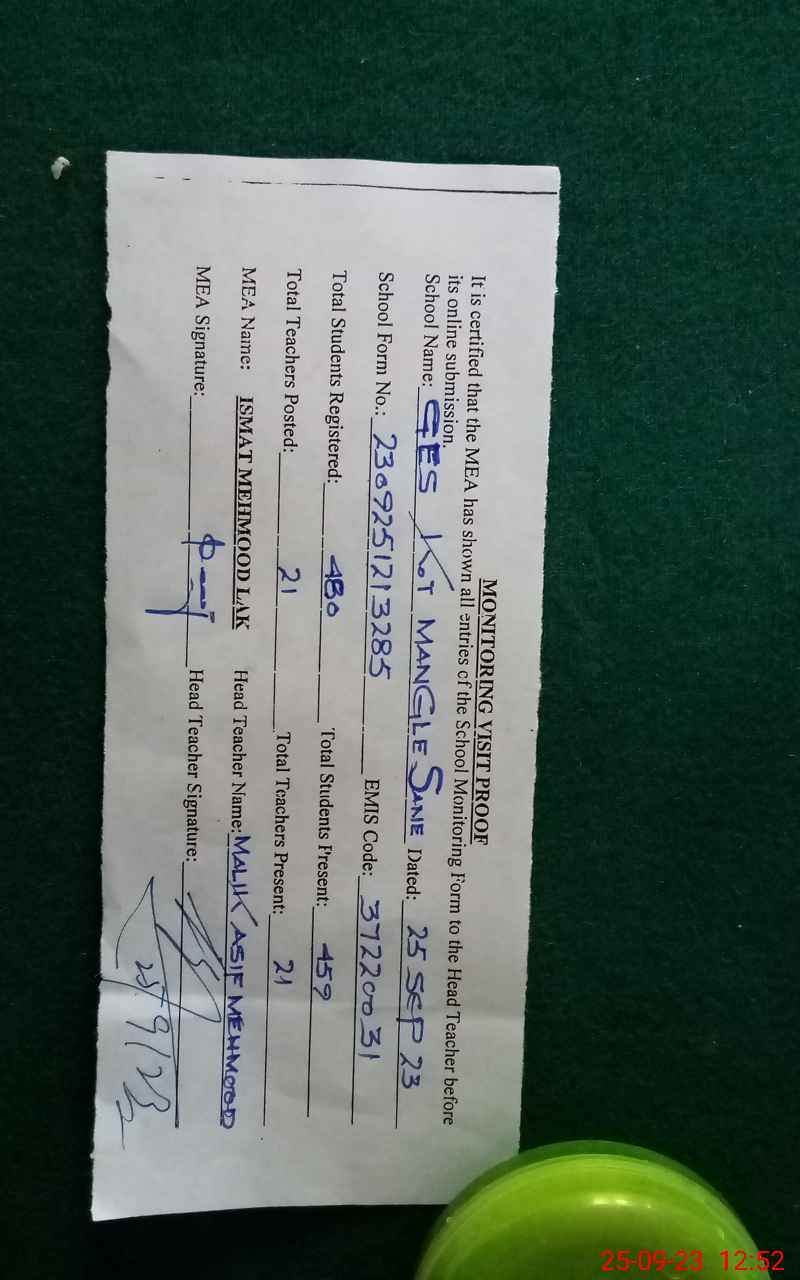 MONITORING VISIT PROOF
It is certified that the MEA has shown all entries of the School Monitoring Form to the Head Teacher before
its online submission.
School Name: GES KOT MANGLE SANE Dated: 25 SEP 23
School Form No.: 2309251213285 EMIS Code: 37220031
Total Students Registered: 480 Total Students Present: 459
Total Teachers Posted: 21 Total Teachers Present: 21
MEA Name: ISMAT MEHMOOD LAK Head Teacher Name: MALIK ASIF MEHMOOD
MEA Signature: Head Teacher Signature:
25/9/23
25-09-23 12:52